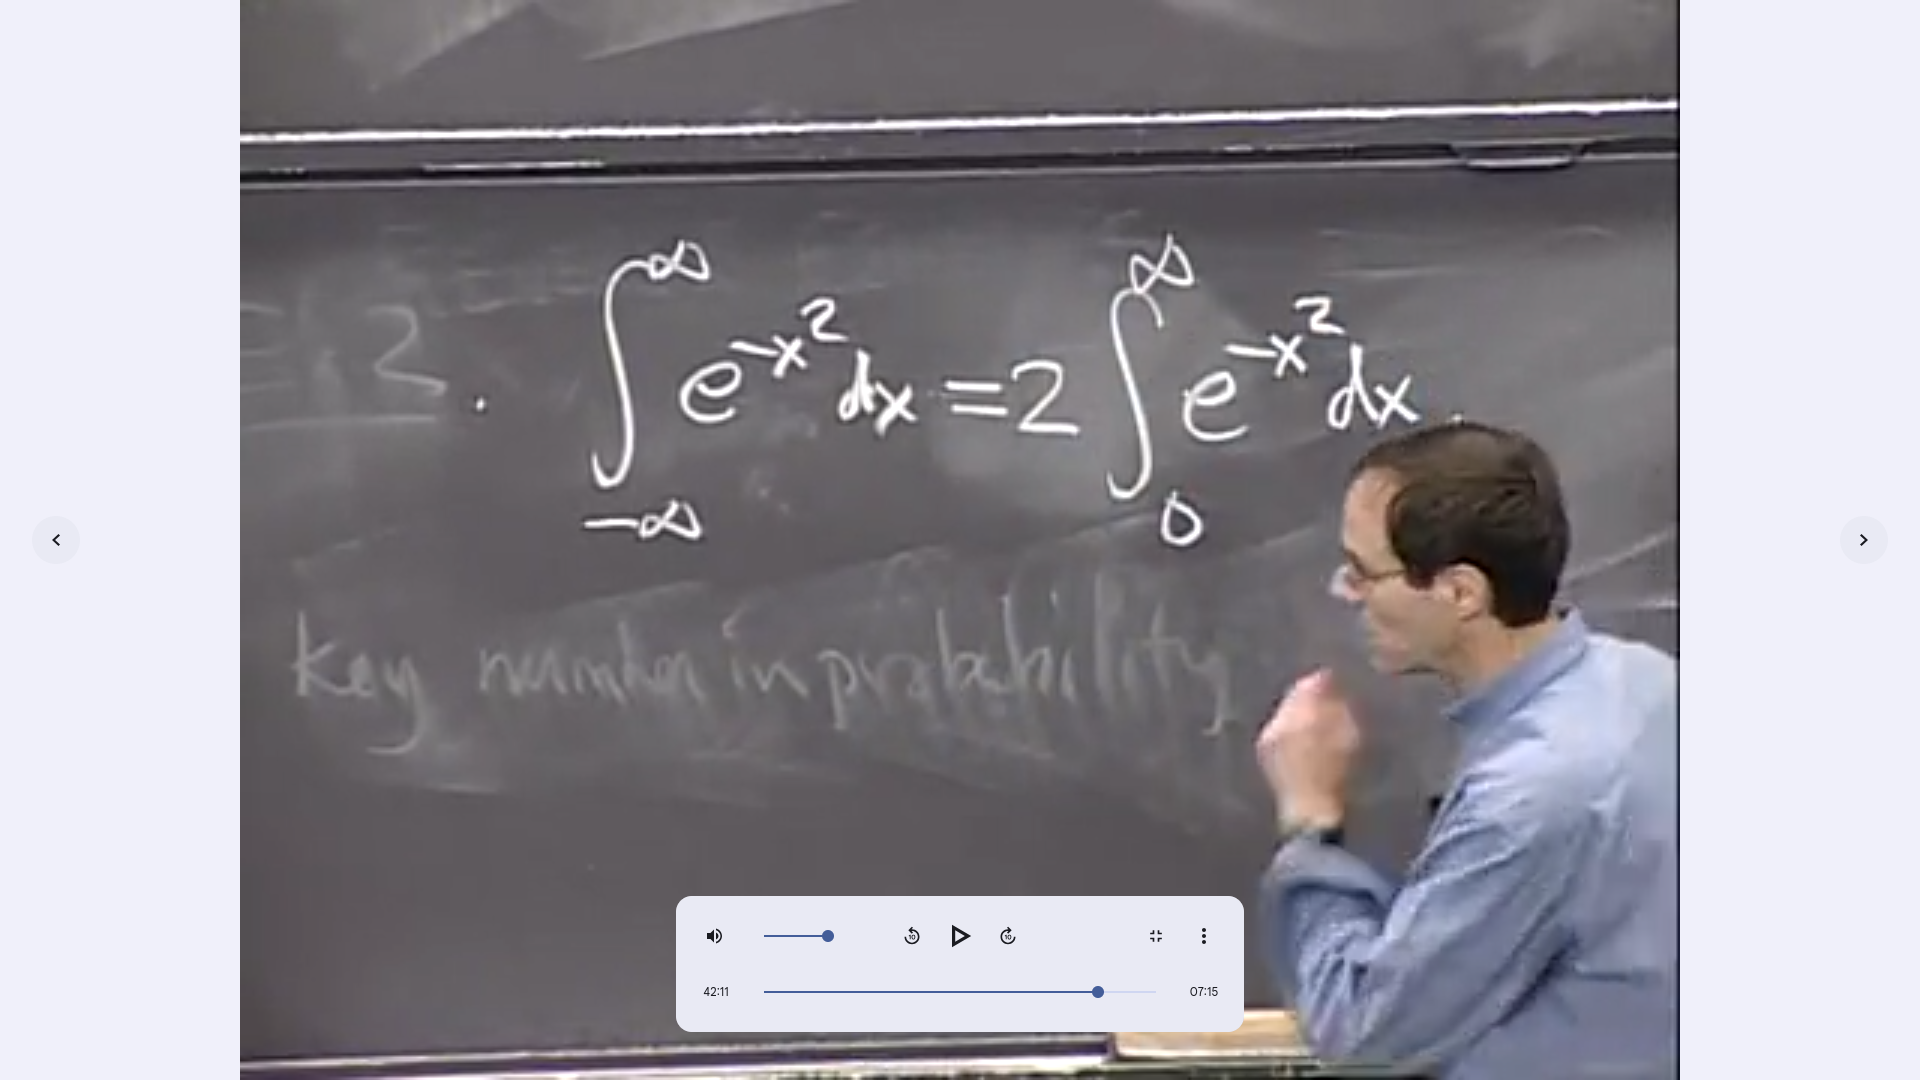 ∫_{-∞}^{∞} e^{-x^2} dx = 2 ∫_0^∞ e^{-x^2} dx
key number in probability
10 10
42:11 07:15